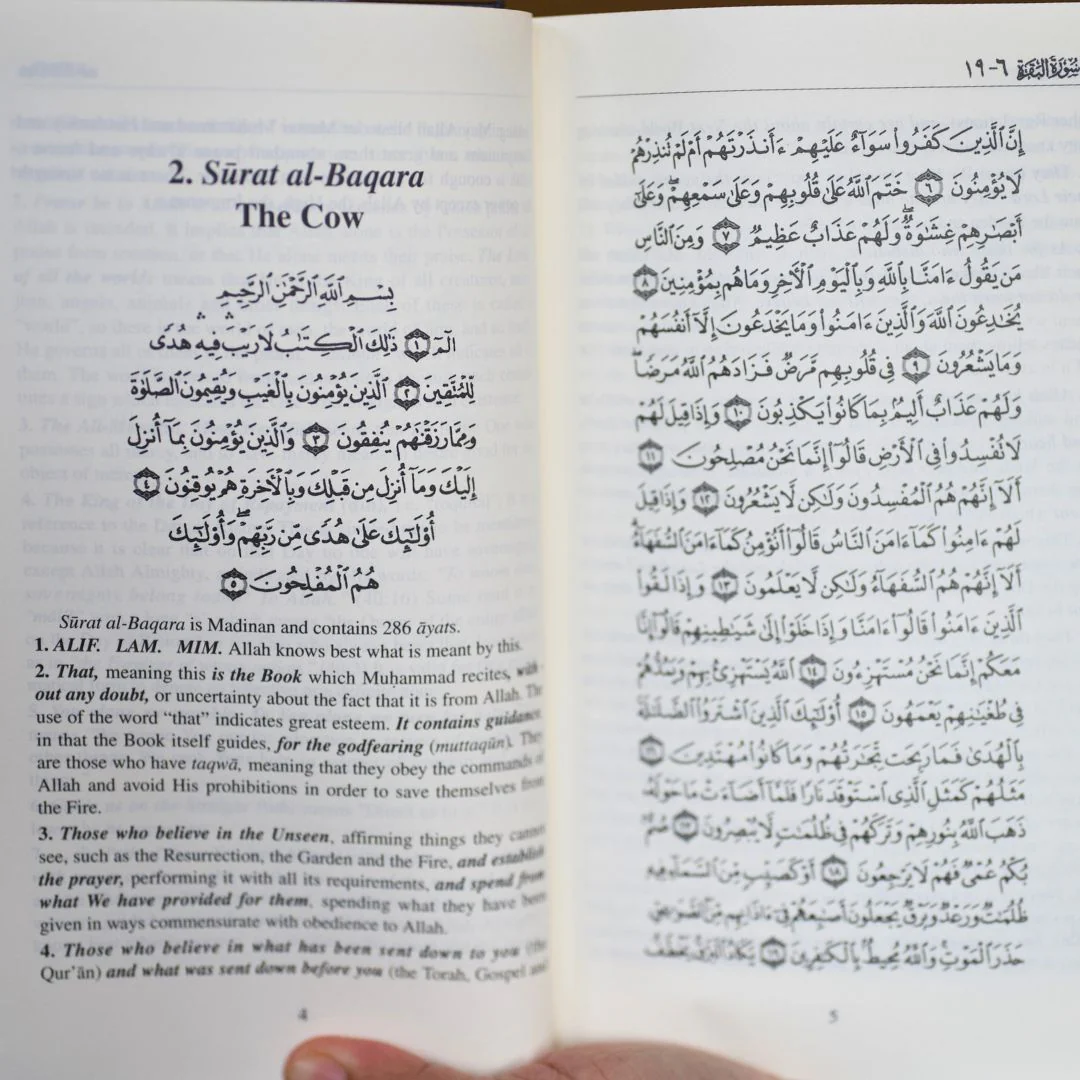 2. Sūrat al-Baqara
The Cow
بِسْمِ اللَّهِ الرَّحْمَٰنِ الرَّحِيمِ
الٓمٓ ۝١ ذَٰلِكَ الْكِتَٰبُ لَا رَيْبَ فِيهِ هُدًى
لِّلْمُتَّقِينَ ۝٢ الَّذِينَ يُؤْمِنُونَ بِالْغَيْبِ وَيُقِيمُونَ الصَّلَوٰةَ
وَمِمَّا رَزَقْنَٰهُمْ يُنفِقُونَ ۝٣ وَالَّذِينَ يُؤْمِنُونَ بِمَا أُنزِلَ
إِلَيْكَ وَمَا أُنزِلَ مِن قَبْلِكَ وَبِالْأَخِرَةِ هُمْ يُوقِنُونَ ۝٤
أُوْلَٰٓئِكَ عَلَىٰ هُدًى مِّن رَّبِّهِمْ ۖ وَأُوْلَٰٓئِكَ
هُمُ الْمُفْلِحُونَ ۝٥
Sūrat al-Baqara is Madinan and contains 286 āyats.
1. ALIF. LAM. MIM. Allah knows best what is meant by this.
2. That, meaning this is the Book which Muḥammad recites, with-
out any doubt, or uncertainty about the fact that it is from Allah. The
use of the word “that” indicates great esteem. It contains guidance
in that the Book itself guides, for the godfearing (muttaqūn). They
are those who have taqwā, meaning that they obey the commands of
Allah and avoid His prohibitions in order to save themselves from
the Fire.
3. Those who believe in the Unseen, affirming things they cannot
see, such as the Resurrection, the Garden and the Fire, and establish
the prayer, performing it with all its requirements, and spend from
what We have provided for them, spending what they have been
given in ways commensurate with obedience to Allah.
4. Those who believe in what has been sent down to you (the
Qur’ān) and what was sent down before you (the Torah, Gospel and
4
سُورَةُ الْبَقَرَةِ ٦-١٩
إِنَّ الَّذِينَ كَفَرُوا سَوَآءٌ عَلَيْهِمْ ءَأَنذَرْتَهُمْ أَمْ لَمْ تُنذِرْهُمْ
لَا يُؤْمِنُونَ ۝٦ خَتَمَ اللَّهُ عَلَىٰ قُلُوبِهِمْ وَعَلَىٰ سَمْعِهِمْ ۖ وَعَلَىٰ
أَبْصَٰرِهِمْ غِشَٰوَةٌ ۖ وَلَهُمْ عَذَابٌ عَظِيمٌ ۝٧ وَمِنَ النَّاسِ
مَن يَقُولُ ءَامَنَّا بِاللَّهِ وَبِالْيَوْمِ الْأَخِرِ وَمَا هُم بِمُؤْمِنِينَ ۝٨
يُخَٰدِعُونَ اللَّهَ وَالَّذِينَ ءَامَنُوا وَمَا يَخْدَعُونَ إِلَّا أَنفُسَهُمْ
وَمَا يَشْعُرُونَ ۝٩ فِي قُلُوبِهِم مَّرَضٌ فَزَادَهُمُ اللَّهُ مَرَضًا ۖ
وَلَهُمْ عَذَابٌ أَلِيمٌ بِمَا كَانُوا يَكْذِبُونَ ۝١٠ وَإِذَا قِيلَ لَهُمْ
لَا تُفْسِدُوا فِي الْأَرْضِ قَالُوا إِنَّمَا نَحْنُ مُصْلِحُونَ ۝١١
أَلَا إِنَّهُمْ هُمُ الْمُفْسِدُونَ وَلَٰكِن لَّا يَشْعُرُونَ ۝١٢ وَإِذَا قِيلَ
لَهُمْ ءَامِنُوا كَمَا ءَامَنَ النَّاسُ قَالُوا أَنُؤْمِنُ كَمَا ءَامَنَ السُّفَهَآءُ ۗ
أَلَا إِنَّهُمْ هُمُ السُّفَهَآءُ وَلَٰكِن لَّا يَعْلَمُونَ ۝١٣ وَإِذَا لَقُوا
الَّذِينَ ءَامَنُوا قَالُوا ءَامَنَّا وَإِذَا خَلَوْا إِلَىٰ شَيَٰطِينِهِمْ قَالُوا إِنَّا
مَعَكُمْ إِنَّمَا نَحْنُ مُسْتَهْزِءُونَ ۝١٤ اللَّهُ يَسْتَهْزِئُ بِهِمْ وَيَمُدُّهُمْ
فِي طُغْيَٰنِهِمْ يَعْمَهُونَ ۝١٥ أُوْلَٰٓئِكَ الَّذِينَ اشْتَرَوُا الضَّلَٰلَةَ
بِالْهُدَىٰ فَمَا رَبِحَت تِّجَٰرَتُهُمْ وَمَا كَانُوا مُهْتَدِينَ ۝١٦
مَثَلُهُمْ كَمَثَلِ الَّذِي اسْتَوْقَدَ نَارًا فَلَمَّا أَضَآءَتْ مَا حَوْلَهُ
ذَهَبَ اللَّهُ بِنُورِهِمْ وَتَرَكَهُمْ فِي ظُلُمَٰتٍ لَّا يُبْصِرُونَ ۝١٧ صُمٌّ
بُكْمٌ عُمْيٌ فَهُمْ لَا يَرْجِعُونَ ۝١٨ أَوْ كَصَيِّبٍ مِّنَ السَّمَآءِ فِيهِ
ظُلُمَٰتٌ وَرَعْدٌ وَبَرْقٌ يَجْعَلُونَ أَصَٰبِعَهُمْ فِي ءَاذَانِهِم مِّنَ الصَّوَٰعِقِ
حَذَرَ الْمَوْتِ وَاللَّهُ مُحِيطٌ بِالْكَٰفِرِينَ ۝١٩ يَكَادُ الْبَرْقُ يَخْطَفُ
5